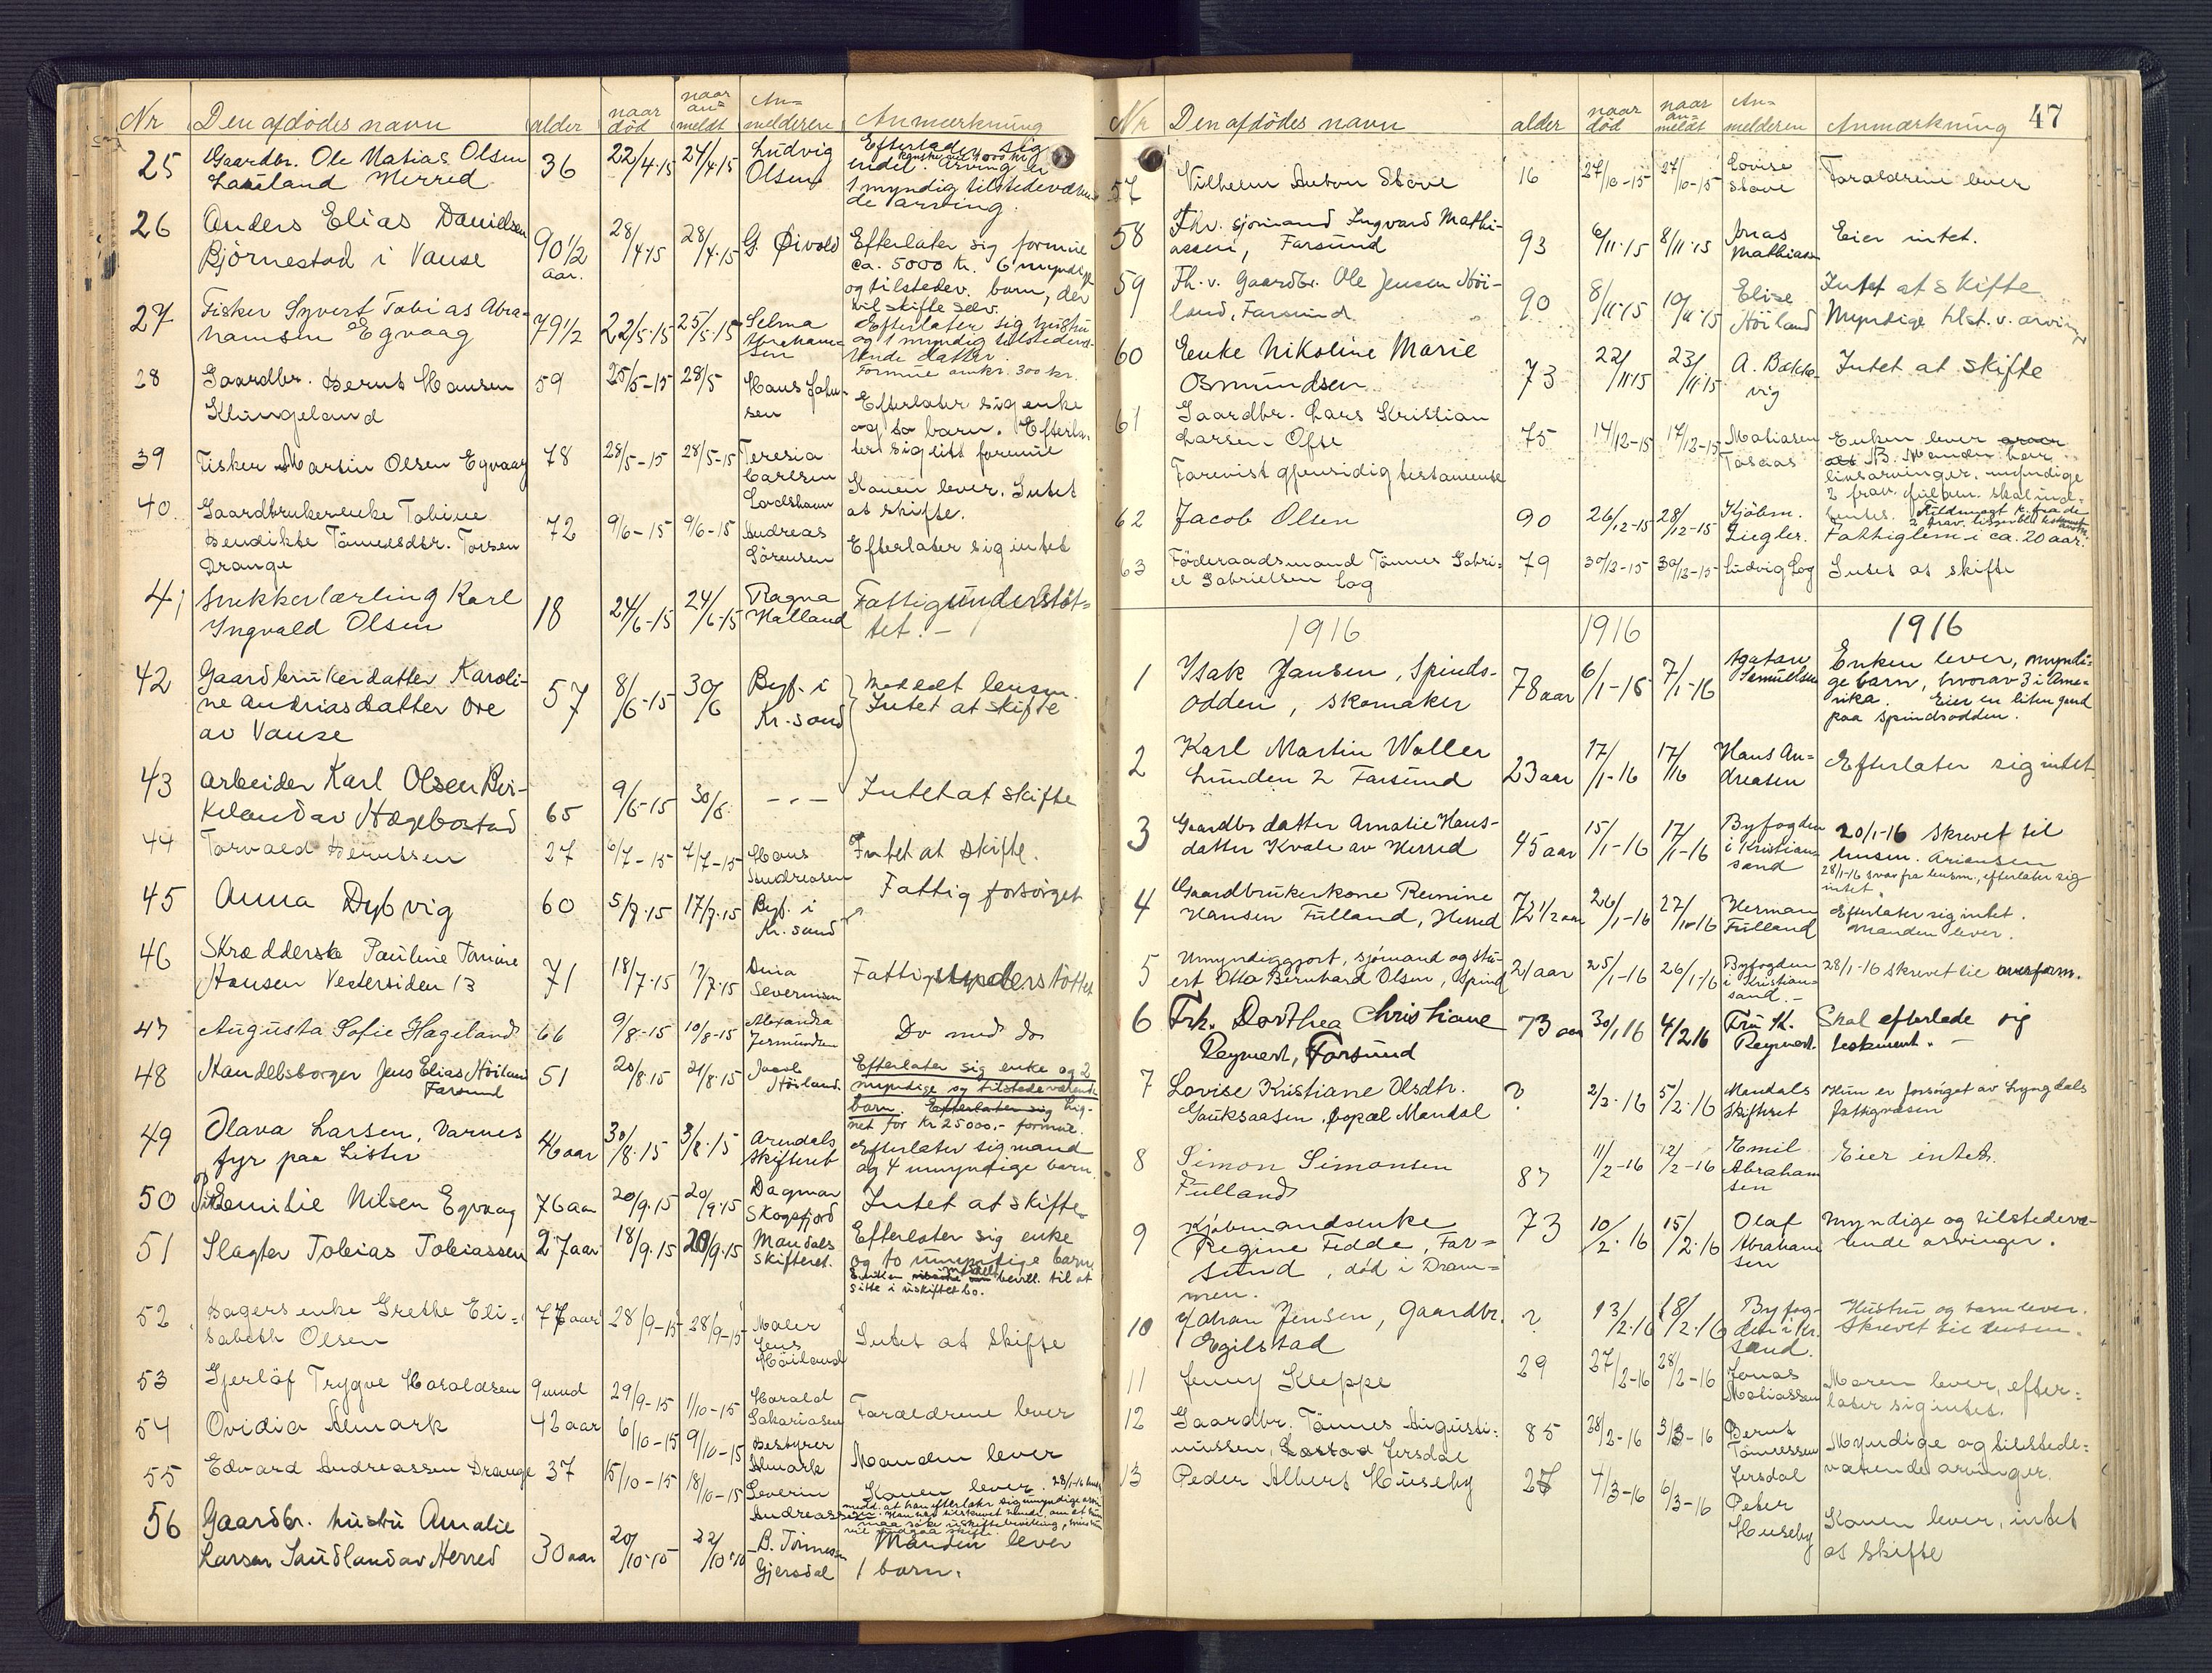 Nr Den afdödes navn alder naar död naar an=meldt An=melderen Anmærkning
25 Gaardbr. Ole Matias Olsen 36 22/4·15 24/4·15 Ludvig Efterlader sig
Laueland Herred Olsen
1 myndig tilstedeværen
de arving.
26 Anders Elias Danielsen 90 1/2 28/4·15 28/4·15 G. Øivold Efterlater sig formue
Björnestad i Vanse aar. ca. 5000 kr. 6 myndige
og tilstedev. börn, der
vil skifte selv.
27 Fisker Syvert Tobias Abra= 79 1/2 22/5·15 25/5·15 Selma Efterlater sig hustru
hamsen Egvaag Abraham= og 1 myndig tilstedevæ-
sen rende datter.
Formue omkr. 300 kr.
28 Gaardbr. Bernt Hansen 59 25/5-15 28/5 Hans John- Efterlater sig enke
Klungeland sen og to barn. Efterla-
ter sig litt formue
39 Fisker Martin Olsen Egvaag 78 28/5-15 28/5-15 Teresia Konen lever. Intet
Carlsen at skifte.
Lordshavn
40 Gaardbrukerenke Tobine 72 9/6-15 9/6-15 Andreas Efterlater sig intet
Bendikte Tönnesdtr. Torsen Sörensen
Drange
41 Snekkerlærling Karl 18 24/6-15 24/6-15 Ragna Fattigunderstöt=
Ingvald Olsen Halland tet. -
42 Gaardbrukerdatter Karoli- 57 8/6-15 30/6 Byf. i Meddelt lensm.
ne Andreasdatter Ore Kr.sand Intet at skifte
av Vanse
43 Arbeider Karl Olsen Bir- 65 9/6-15 30/6 -"- Intet at skifte
keland av Hægebostad
44 Torvald Berntsen 27 6/7-15 7/7-15 Hans Intet at skifte.
Andreasen
45 Anna Dybvig 60 5/7·15 17/7·15 Byf. i Fattig forsörget
Kr.sand
46 Skrædderske Pauline Tomine 71 18/7·15 19/7·15 Dina Fattigunderstöttet
Hansen Vestersiden 13 Severinsen
47 Augusta Sofie Hageland 66 9/8-15 10/8-15 Alexandra Do med do
Jermundsen
48 Handelsborger Jens Elias Höiland 51 20/8·15 21/8·15 Jacob Efterlater sig enke og 2
Farsund Höiland myndige og tilstedeværende
barn. Efterlater sig lig-
net for Kr 25000.- formue.
49 Olava Larsen, Varnes 46 aar 30/8·15 3/8·15 Arendals Efterlater sig mand
fyr paa Lister Skifteret og 4 umyndige barn.
50 Emilie Nilsen Egvaag 76 aar 20/9·15 20/9·15 Dagmar Intet at skifte
Skogsfjord
51 Slagter Tobias Tobiassen 27 aar 18/9·15 20/9·15 Mandals Efterlater sig enke
Skifteret. og to umyndige barn.
bevill. til at
sitte i uskiftet bo.
52 Bagers enke Grethe Eli= 77 aar 28/9-15 28/9-15 Maler Intet at skifte
sabeth Olsen Jens
Höiland
53 Gjerlöf Trygve Haraldsen 9 mnd 29/9-15 1/10-15 Harald Forældrene lever
Sakariasen
54 Ovidia Almark 42 aar 6/10-15 9/10-15 Bestyrer Manden lever
Almark
55 Edvard Andreassen Drange 37 15/10-15 18/10-15 Severin Konen lever.
Andreassen
56 Gaardbr. hustru Amalie 30 aar 20/10·15 22/10·15 B. Tönnessen Manden lever
Larsen Saudland av Herred Gjersdal 1 barn.
Nr Den afdödes navn alder naar död naar an=meldt An=melderen Anmærkning 47
57 Vilhelm Anton Stave 16 27/10-15 27/10-15 Lovise Forældrene lever
Stave
58 Fhv. sjömand Ingvard Mathi- 93 6/11·15 8/11·15 Jonas Eier intet.
assen, Farsund Mathiassen
59 Fh.v. Gaardbr. Ole Jensen Höi- 90 8/11·15 10/11·15 Elise Intet at skifte
land, Farsund Höiland Myndige tilst.v. arving
60 Enke Nikoline Marie 73 22/11·15 23/11·15 A. Bække- Intet at skifte
Osmundsen vig
61 Gaardbr. Lars Kristian 75 14/12-15 17/12-15 Matiasen Enken lever
Larsen Ofte Tosaas NB. Manden har
Forevist gjensidig testamente livsarvinger. myndige
62 Jacob Olsen 90 26/12-15 28/12-15 Kjöbm. Fattiglem i ca. 20 aar.
Ziegler.
63 Föderaadsmand Tönnes Gabri= 79 30/12-15 30/12-15 Ludvig Log Intet at skifte
el Gabrielsen Log
1916 1916 1916
1 Isak Jansen, Spinds- 78 aar 6/1-16 7/1-16 Agatane Enken lever, myndi-
odden, skomaker Semuelsen ge barn, hvorav 3 i Ame-
rika. Eier en liten gaard
paa Spindsodden.
2 Karl Martin Woller 23 aar 17/1-16 17/1 16 Hans An- Efterlater sig intet
Lunden 2 Farsund dreasen
3 Gaardbr. datter Amalie Hans- 45 aar 15/1-16 17/1-16 Byfogden 20/1-16 Skrevet til
datter Kvale av Herred i Kristian- lensm. Ariansen
sand 28/1-16 svar fra lensm., efterlater sig
intet.
4 Gaardbrukerkone Remine 72 1/2 aar 26/1-16 27/1-16 Herman Efterlater sig intet.
Hansen Fulland, Herred Fulland Manden lever.
5 Umyndiggjort, sjömand og stu- 21 aar 25/1-16 26/1-16 Byfogden 28/1-16 skrevet til overform.
ert Otto Bernhard Olsen, Spind i Kristian-
sand.-
6 Frk. Dorthea Christiane 73 aar 30/1 16 4/2 16 Fru K. Skal efterlade sig
Reymert, Farsund Reymert. testament. -
7 Lovise Kristiane Olsdtr. ? 2/2·16 5/2·16 Mandals Hun er forsörget av Lyngdals
Gauksaasen, Mandal Skifteret fattigvæsen
8 Simon Simonsen 87 11/2-16 12/2-16 Emil Eier intet.
Fulland Abraham
sen
9 Kjöbmandsenke 73 10/2·16 15/2·16 Olaf Myndige og tilstedevæ-
Regine Fedde, Far= Abraham rende arvinger.
sund, död i Dram= sen
men.
10 Johan Jensen, Gaardbr. ? 13/2·16 18/2·16 Byfog- Hustru og barn lever.
Egilstad den i Kr. Skrevet til lensm.
sand.
11 Jenny Kleppe 29 27/2-16 28/2-16 Jonas Moren lever, efter=
Matiassen later sig intet.
12 Gaardbr. Tönnes Augusti= 85 28/2-16 3/3-16 Bernt Myndige og tilstede=
nussen, Jersdal Tönnessen værende arvinger.
Jersdal
13 Peder Albert Huseby 27 4/3-16 6/3-16 Peter Konen lever, intet
Huseby at skifte